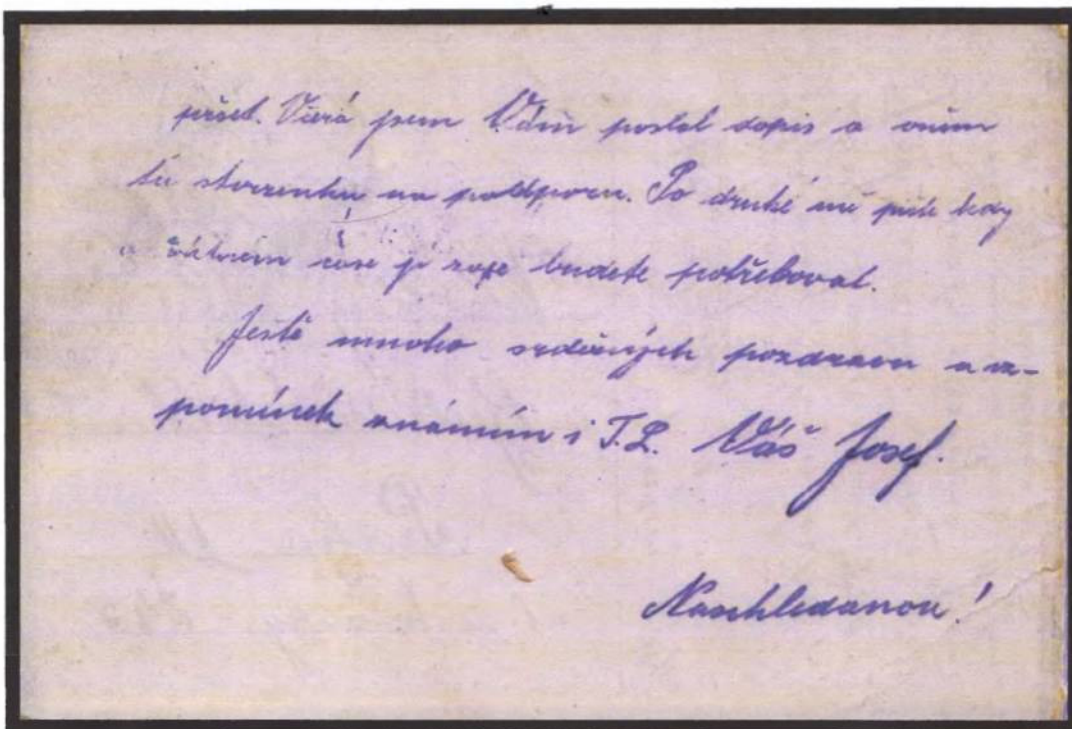 přijet. Včerá jsem Vám poslal dopis a vněm
tu stvrzenku na podporu. Po druhé mě piště kdy
v čase ji zase budete potřeboval.
Jestě mnoho srděčných pozdravu a vz-
pomínek známím i T.L. Váš Josef.
Naschledanou!